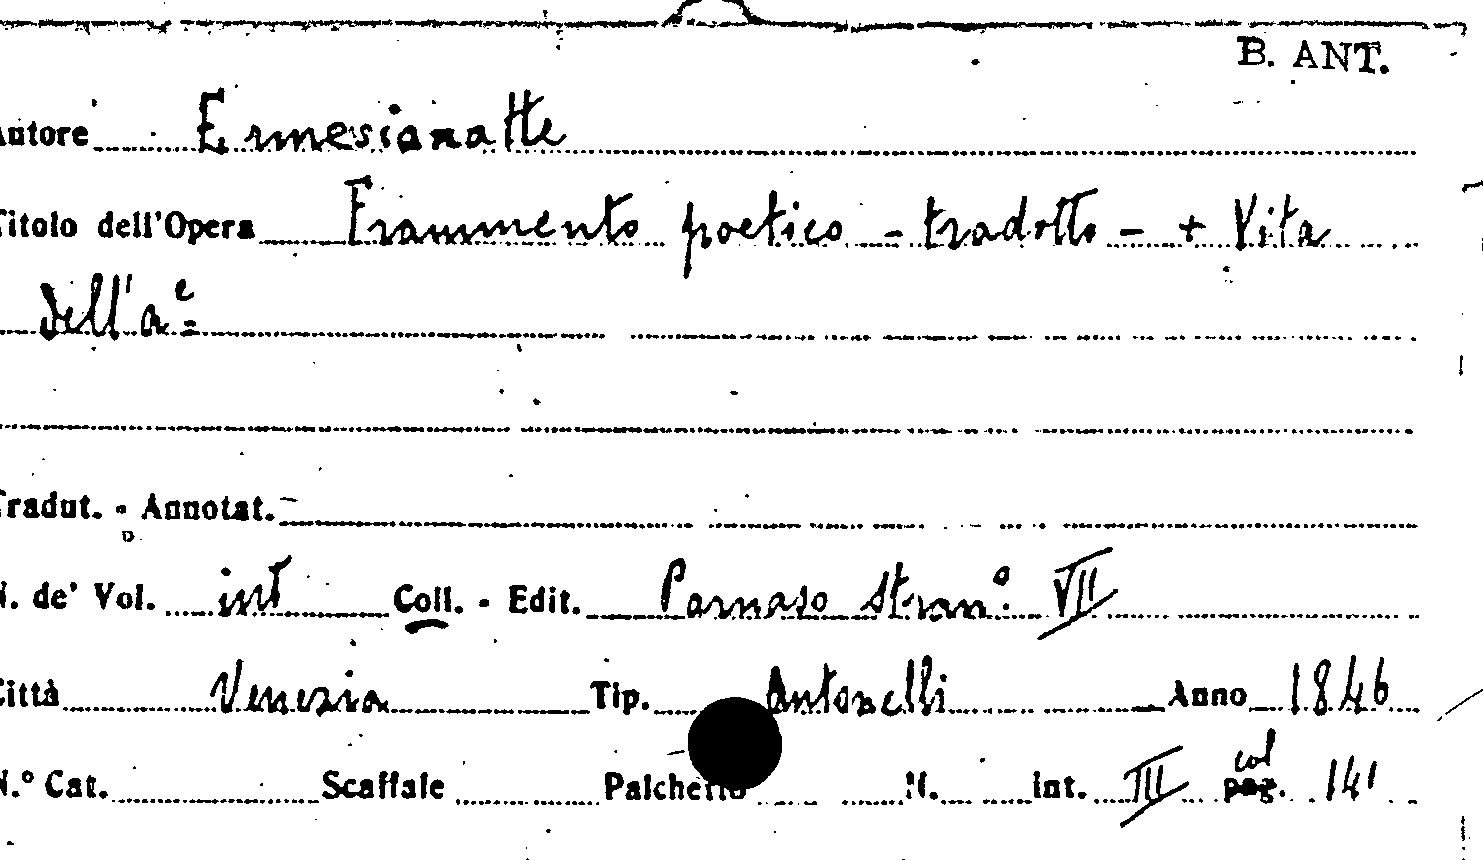 B. ANT.
Autore Ermesianatte
Titolo dell'Opera Frammento poetico - tradotto - + Vita
dell'a.e
Tradut. - Annotat.
N. de' Vol. int Coll. - Edit. Parnaso Stran.o VII
Città Venezia Tip. Antonelli Anno 1846
N.o Cat. Scaffale Palchetto N. int. III col pag. 141